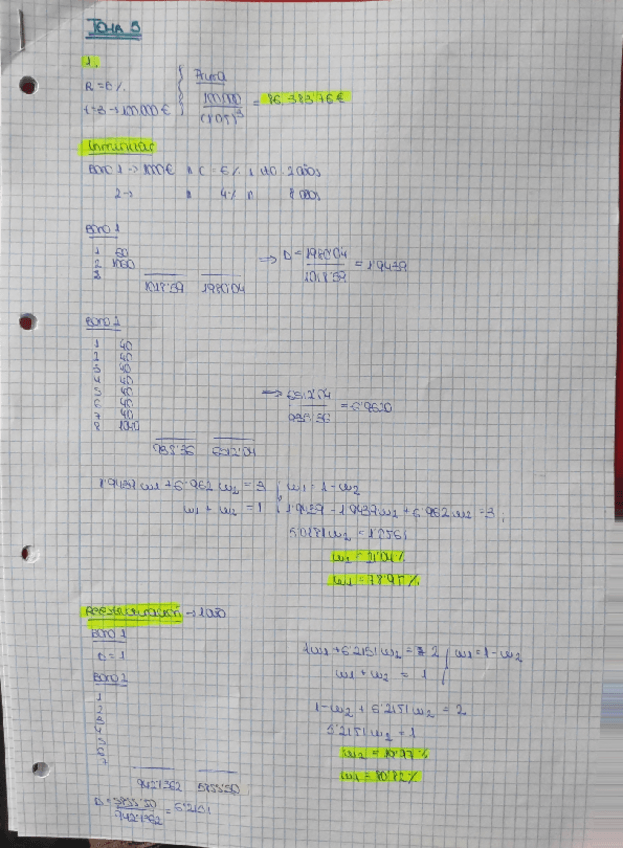 TEMA 5
1.
R = 5%
t=3 → 100000€
Prima
100000
(1'05)³
= 86.383'76€
Inmunizar
Bono 1 → 1000€ 2 años
2 → 4% 8 años
Bono 1
1 60
2 1060
3
1018'59 1980'04
⇒ D = 1980'04
1018'59
= 1'9439
Bono 2
1 40
2 40
3 40
4 40
5 40
6 40
7 40
8 1040
935'36 6512'04
⇒ 6512'04
935'36
= 6'9620
1'9439w1 + 6'962 w2 = 3 ; w1 = 1 - w2
w1 + w2 = 1
1'9439 - 1'9439w2 + 6'962w2 = 3 ;
5'0181w2 = 1'0561
w2 = 21'04%
w1 = 78'95%
Reestructuración → 1 año
Bono 1
D = 1
Bono 2
1
2
3
4
5
6
7
942'1362 5855'50
D = 5855'50
942'1362
= 6'2151
1w1 + 6'2151w2 = 2 ; w1 = 1 - w2
w1 + w2 = 1
1 - w2 + 6'2151w2 = 2
5'2151w2 = 1